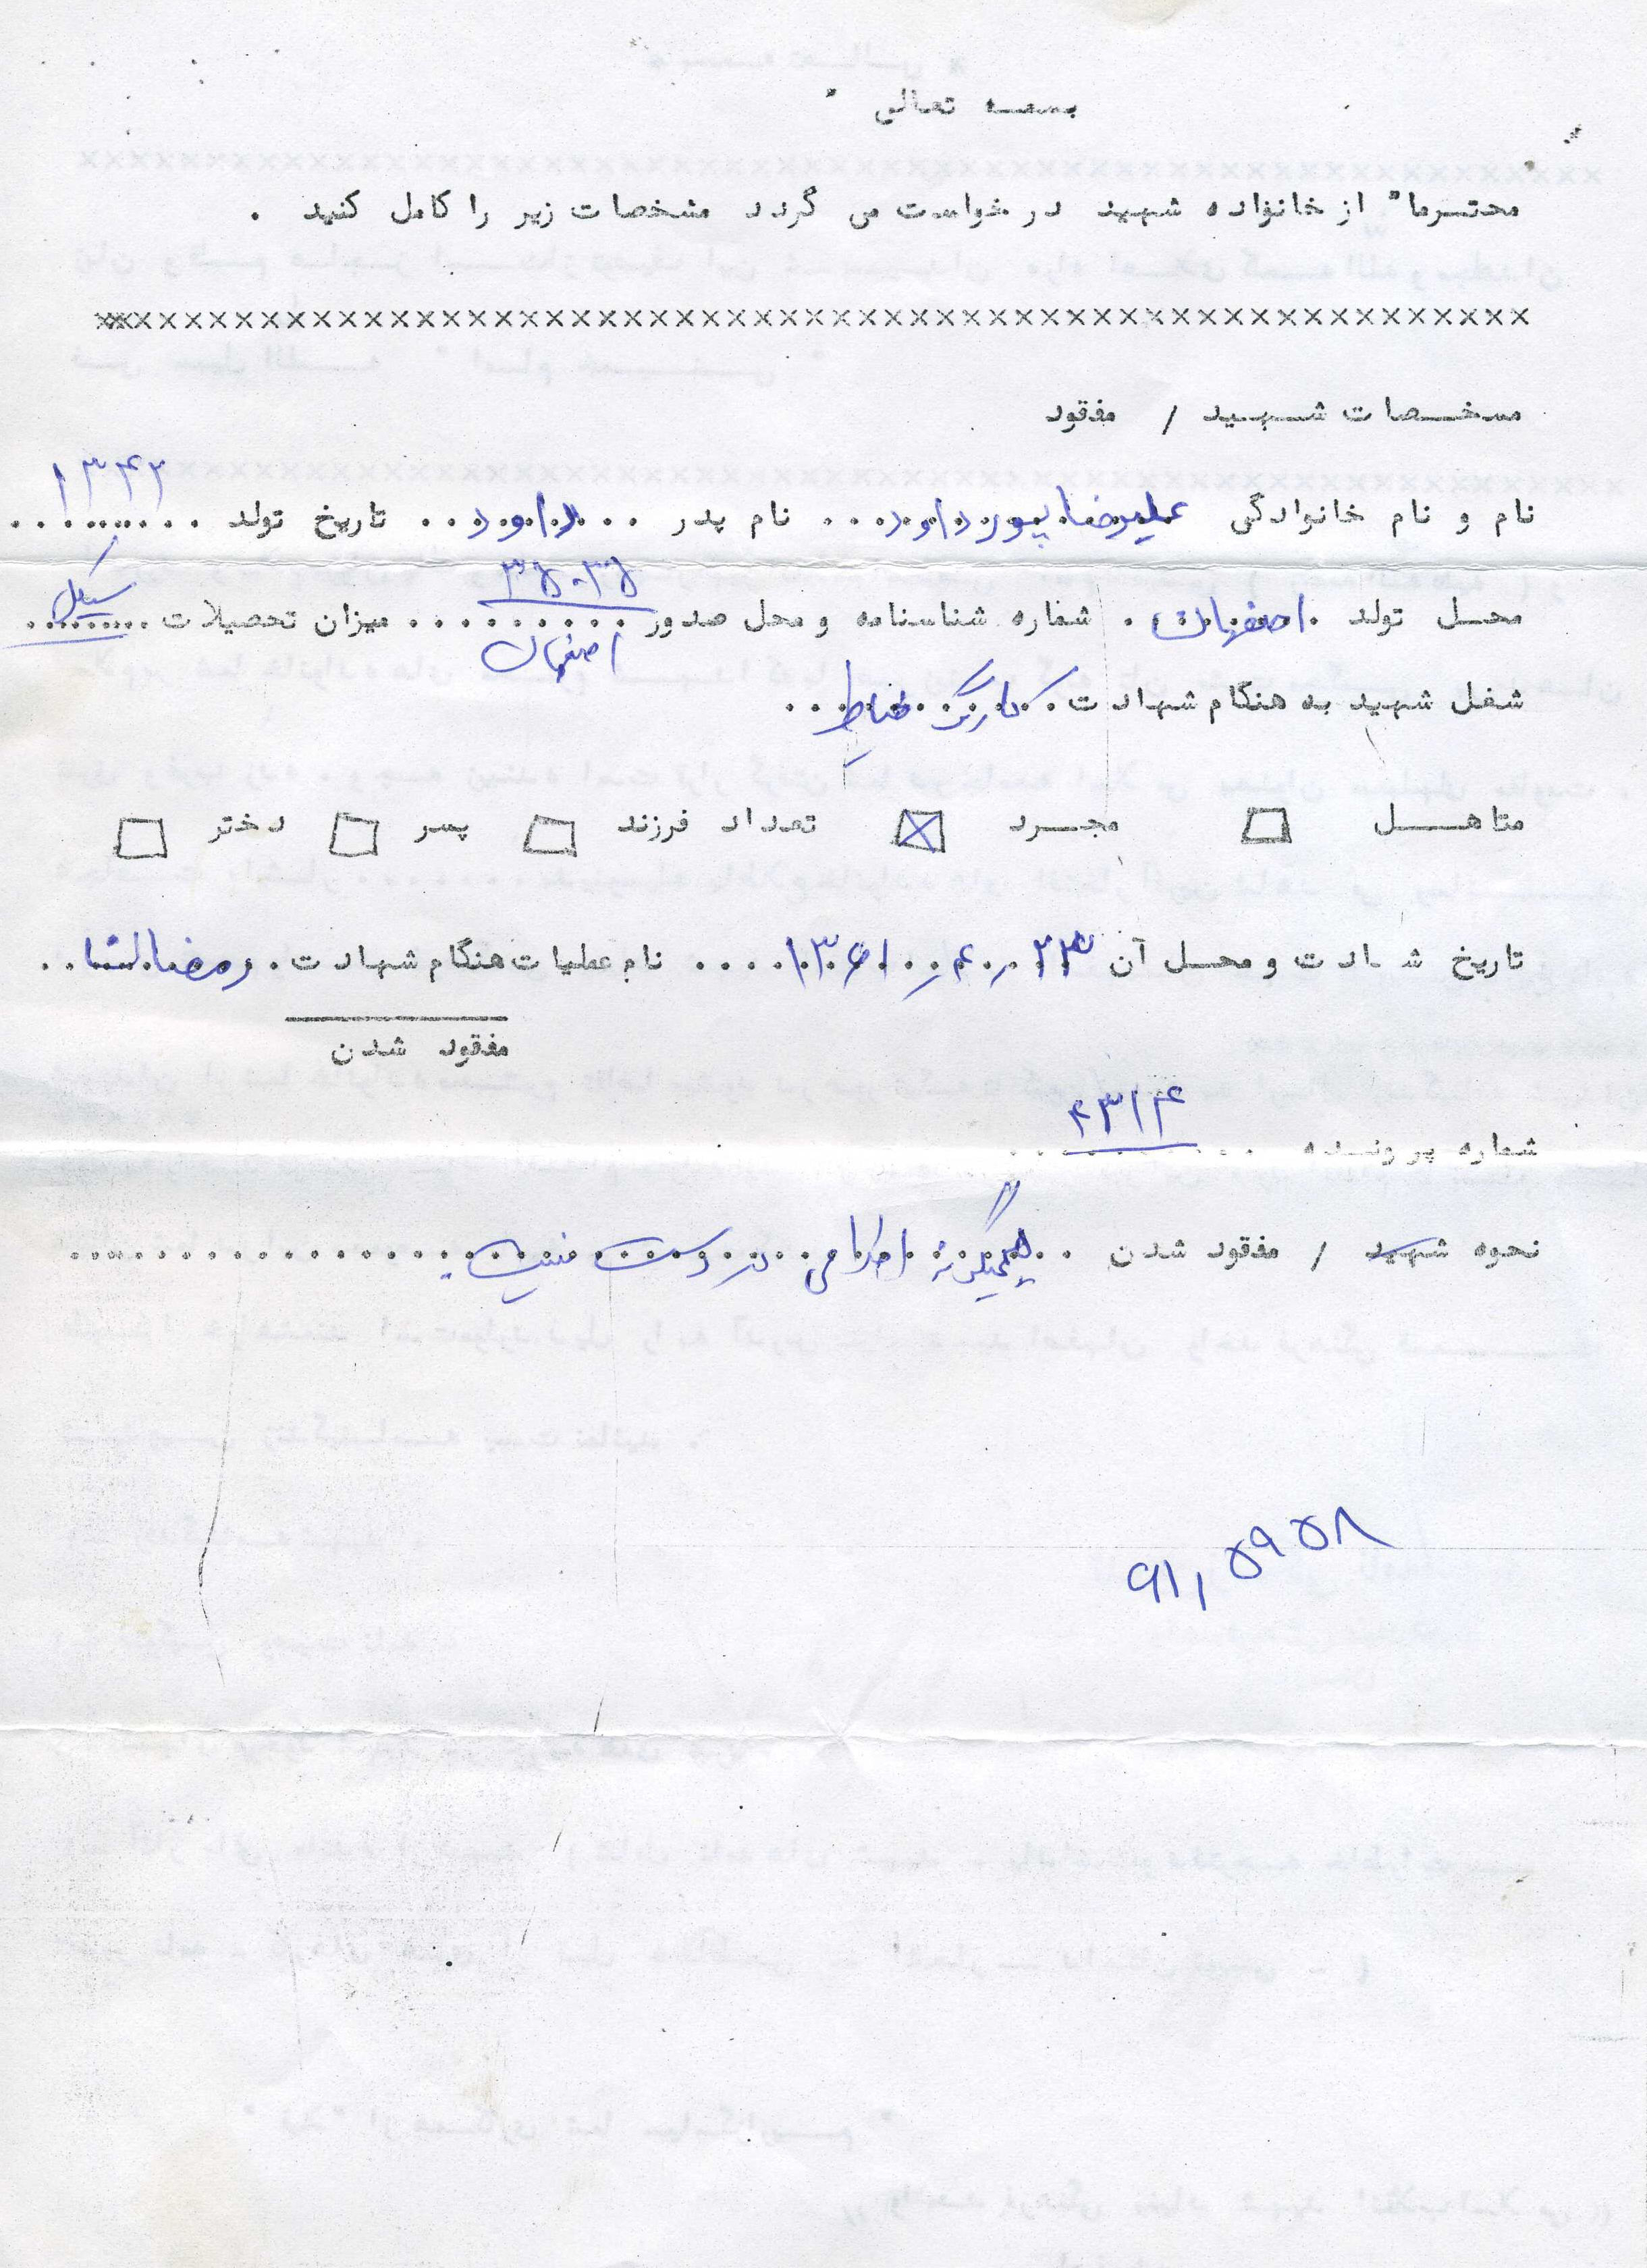 بسمه تعالی
محترما" از خانواده شهید درخواست می گردد مشخصات زیر را کامل کنید .
××××××××××××××××××××××××××××××××××××××××××××××××××××××××
مسخصات شهید / مفقود
نام و نام خانوادگی علیرضا پورداود نام پدر داود تاریخ تولد ۱۳۴۲
محل تولد اصفهان شماره شناسنامه و محل صدور ۳۵۰۳۵ اصفهان میزان تحصیلات سیکل
شغل شهید به هنگام شهادت کارگر خیاط
متاهل مجرد تعداد فرزند پسر دختر
تاریخ شهادت و محل آن ۲۳ر۴ر۱۳۶۱ نام عملیات هنگام شهادت رمضان
مفقود شدن
شماره پرونده ۴۳۱۴
نحوه شهید / مفقود شدن هیچگونه اطلاعی در دست نیست.
۹۱٫۵۹۵۸